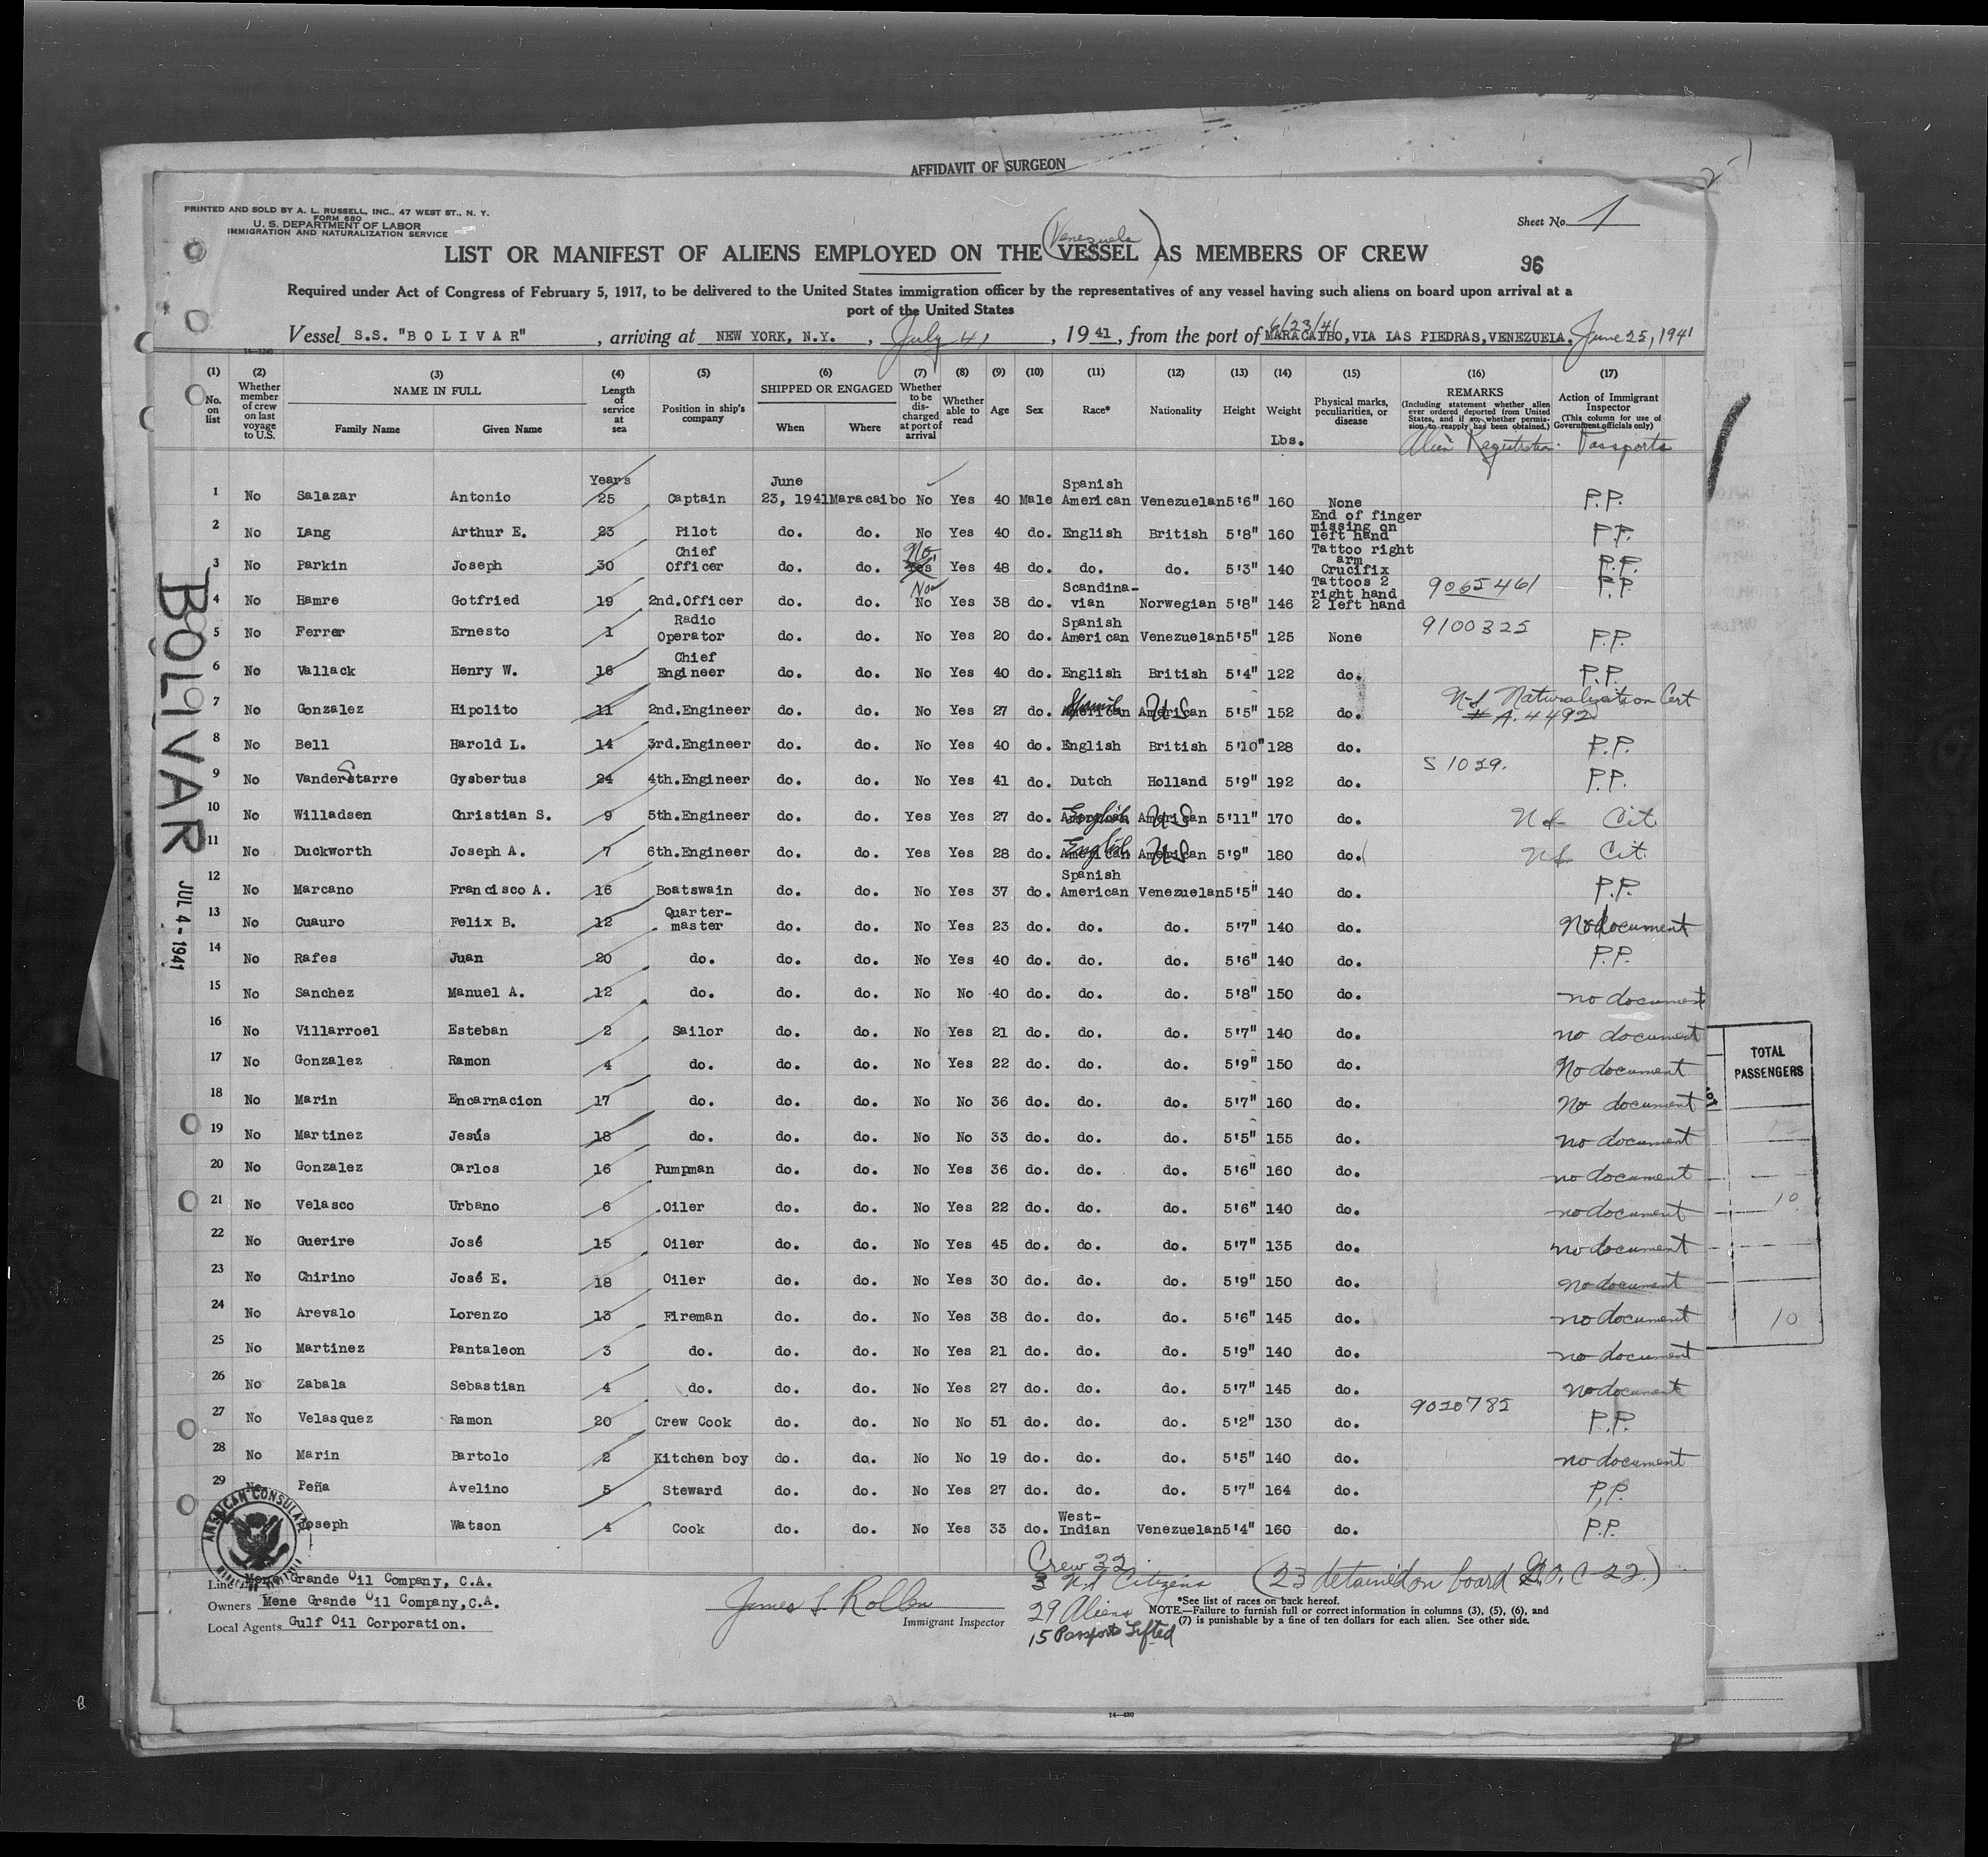 AFFIDAVIT OF SURGEON
PRINTED AND SOLD BY A. L. RUSSELL, INC., 47 WEST ST., N. Y.
FORM 680
U. S. DEPARTMENT OF LABOR
IMMIGRATION AND NATURALIZATION SERVICE
Sheet No. 1
Venezuela
LIST OR MANIFEST OF ALIENS EMPLOYED ON THE VESSEL AS MEMBERS OF CREW
96
Required under Act of Congress of February 5, 1917, to be delivered to the United States immigration officer by the representatives of any vessel having such aliens on board upon arrival at a
port of the United States
6/23/41
Vessel S.S. "B O L I V A R" , arriving at NEW YORK, N.Y. , July 4, , 19 41 , from the port of MARACAIBO, VIA LAS PIEDRAS, VENEZUELA, June 25, 1941
(1) No. on list
(2) Whether member of crew on last voyage to U.S.
(3) NAME IN FULL Family Name Given Name
(4) Length of service at sea
(5) Position in ship's company
(6) SHIPPED OR ENGAGED When Where
(7) Whether to be discharged at port of arrival
(8) Whether able to read
(9) Age
(10) Sex
(11) Race*
(12) Nationality
(13) Height
(14) Weight Lbs.
(15) Physical marks, peculiarities, or disease
(16) REMARKS (Including statement whether alien ever ordered deported from United States, and if so, whether permission to reapply has been obtained.) Alien Registration
(17) Action of Immigrant Inspector (This column for use of Government officials only) Passports
1 No Salazar Antonio Years 25 Captain June 23, 1941 Maracaibo No Yes 40 Male Spanish American Venezuelan 5'6" 160 None P.P.
2 No Lang Arthur E. 23 Pilot do. do. No Yes 40 do. English British 5'8" 160 End of finger missing on left hand P.P.
3 No Parkin Joseph 30 Chief Officer do. do. No Yes Yes 48 do. do. do. 5'3" 140 Tattoo right arm Crucifix P.P.
4 No Hamre Gotfried 19 2nd.Officer do. do. No No Yes 38 do. Scandina-vian Norwegian 5'8" 146 Tattoos 2 right hand 2 left hand 9065461 P.P.
5 No Ferrer Ernesto 1 Radio Operator do. do. No Yes 20 do. Spanish American Venezuelan 5'5" 125 None 9100325 P.P.
6 No Vallack Henry W. 16 Chief Engineer do. do. No Yes 40 do. English British 5'4" 122 do. P.P.
7 No Gonzalez Hipolito 11 2nd.Engineer do. do. No Yes 27 do. American Spanish American US 5'5" 152 do. Naturalization Cert # A.4492
8 No Bell Harold L. 14 3rd.Engineer do. do. No Yes 40 do. English British 5'10" 128 do. P.P.
9 No VanderStarre Gysbertus 24 4th.Engineer do. do. No Yes 41 do. Dutch Holland 5'9" 192 do. S 1029. P.P.
10 No Willadsen Christian S. 9 5th.Engineer do. do. Yes Yes 27 do. American English American US 5'11" 170 do. Cit.
11 No Duckworth Joseph A. 7 6th.Engineer do. do. Yes Yes 28 do. American English American US 5'9" 180 do. Cit.
12 No Marcano Francisco A. 16 Boatswain do. do. No Yes 37 do. Spanish American Venezuelan 5'5" 140 do. P.P.
13 No Cuauro Felix B. 12 Quarter-master do. do. No Yes 23 do. do. do. 5'7" 140 do. No document
14 No Rafes Juan 20 do. do. do. No Yes 40 do. do. do. 5'6" 140 do. P.P.
15 No Sanchez Manuel A. 12 do. do. do. No No 40 do. do. do. 5'8" 150 do. no document
16 No Villarroel Esteban 2 Sailor do. do. No Yes 21 do. do. do. 5'7" 140 do. no document
17 No Gonzalez Ramon 4 do. do. do. No Yes 22 do. do. do. 5'9" 150 do. No document
18 No Marin Encarnacion 17 do. do. do. No No 36 do. do. do. 5'7" 160 do. No document
19 No Martinez Jesús 18 do. do. do. No No 33 do. do. do. 5'5" 155 do. no document
20 No Gonzalez Carlos 16 Pumpman do. do. No Yes 36 do. do. do. 5'6" 160 do. no document
21 No Velasco Urbano 6 Oiler do. do. No Yes 22 do. do. do. 5'6" 140 do. no document
22 No Guerire José 15 Oiler do. do. No Yes 45 do. do. do. 5'7" 135 do. no document
23 No Chirino José E. 18 Oiler do. do. No Yes 30 do. do. do. 5'9" 150 do. no document
24 No Arevalo Lorenzo 13 Fireman do. do. No Yes 38 do. do. do. 5'6" 145 do. no document
25 No Martinez Pantaleon 3 do. do. do. No Yes 21 do. do. do. 5'9" 140 do. no document
26 No Zabala Sebastian 4 do. do. do. No Yes 27 do. do. do. 5'7" 145 do. no document
27 No Velasquez Ramon 20 Crew Cook do. do. No No 51 do. do. do. 5'2" 130 do. 9020782 P.P.
28 No Marin Bartolo 2 Kitchen boy do. do. No No 19 do. do. do. 5'5" 140 do. no document
29 No Peña Avelino 5 Steward do. do. No Yes 27 do. do. do. 5'7" 164 do. P.P.
Joseph Watson 4 Cook do. do. No Yes 33 do. West-Indian Venezuelan 5'4" 160 do. P.P.
AMERICAN CONSULATE
Line Mene Grande Oil Company, C.A.
Owners Mene Grande Oil Company, C.A.
Local Agents Gulf Oil Corporation.
James S. Rollen
Immigrant Inspector
Crew 32
3 Citizens
29 Aliens
15 Passports Lifted
(23 detained on board C 22.)
*See list of races on back hereof.
NOTE.—Failure to furnish full or correct information in columns (3), (5), (6), and
(7) is punishable by a fine of ten dollars for each alien. See other side.
14—480
BOLIVAR
JUL 4 - 1941
TOTAL
PASSENGERS
10
10